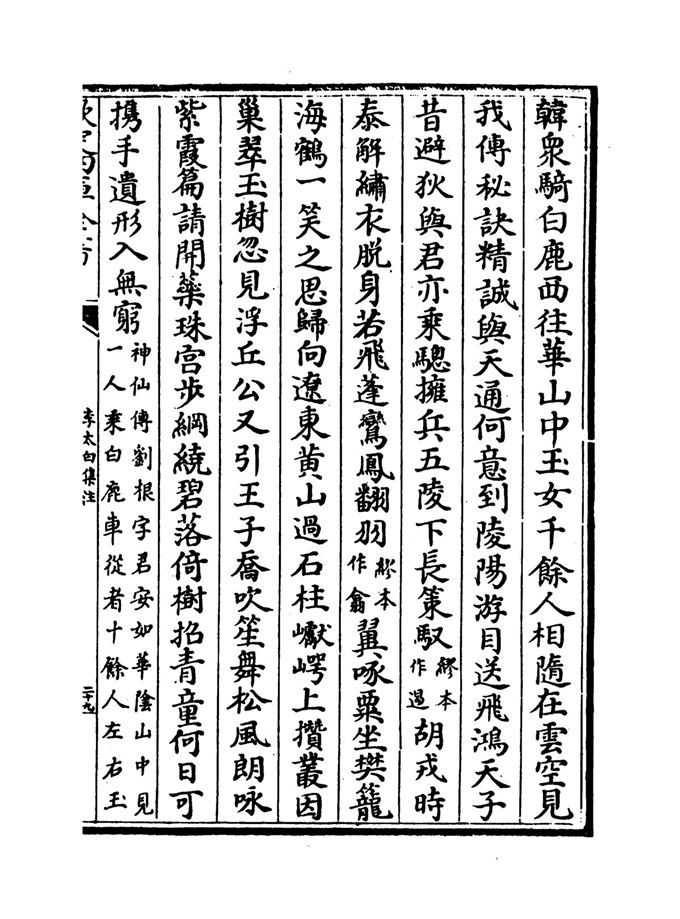 韓衆騎白鹿西往華山中玉女千餘人相隨在雲空見
我傳秘訣精誠與天通何意到陵陽游目送飛鴻天子
昔避狄與君亦乘驄擁兵五陵下長策馭繆本作遏胡戎時
泰解繡衣脱身若飛蓬鸞鳳翻羽繆本作翕翼啄粟坐樊籠
海鶴一笑之思歸向遼東黄山過石柱巘崿上攢叢因
巢翠玉樹忽見浮丘公又引王子喬吹笙舞松風朗咏
紫霞篇請開蘂珠宫步綱繞碧落倚樹招青童何日可
携手遺形入無窮神仙傳劉根字君安如華陰山中見
一人乘白鹿車從者十餘人左右玉
欽定四庫全書
李太白集注
二十九